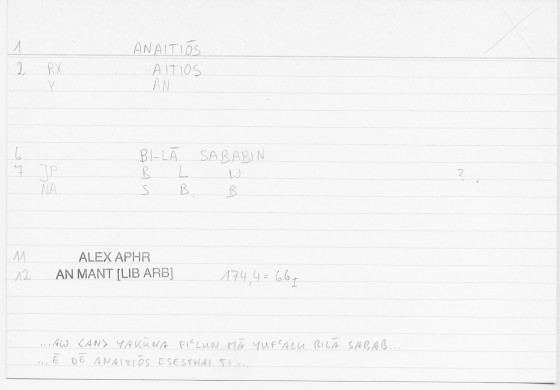 1 ANAITIŌS
2 RX AITIOS
Y AN
6 BI-LĀ SABABIN
7 JP B L W ?
NA S B B
11 ALEX APHR
12 AN MANT [LIB ARB] 174,4 = 66I
...AW <AN> YAKŪNA FIʿLUN MĀ YUFʿALU BILĀ SABAB...
...Ē DĒ ANAITIŌS ESESTHAI TI...